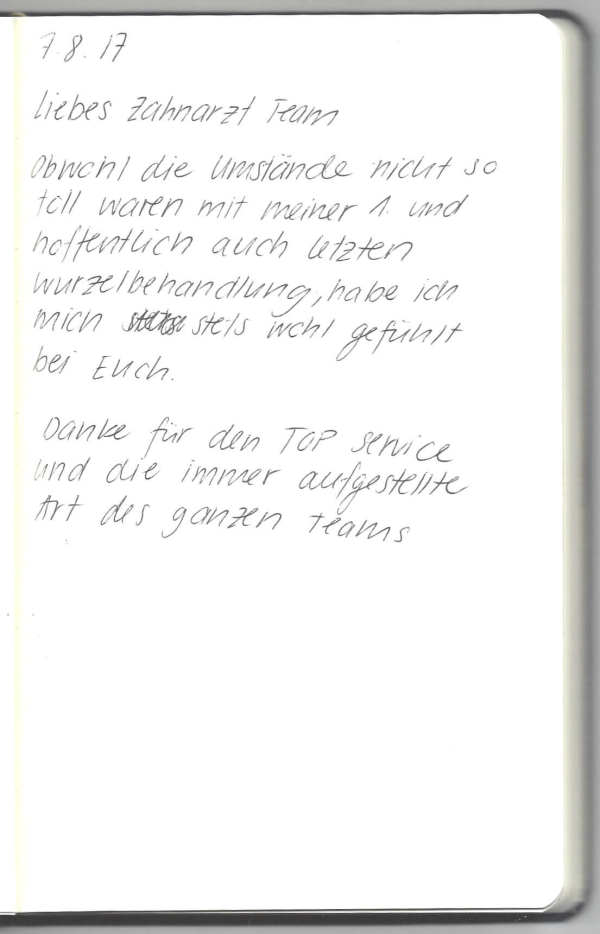 7.8.17
liebes Zahnarzt Team
Obwohl die Umstände nicht so
toll waren mit meiner 1. und
hoffentlich auch letzten
wurzelbehandlung, habe ich
mich stets wohl gefühlt
bei Euch.
Danke für den TOP service
und die immer aufgestellte
Art des ganzen teams